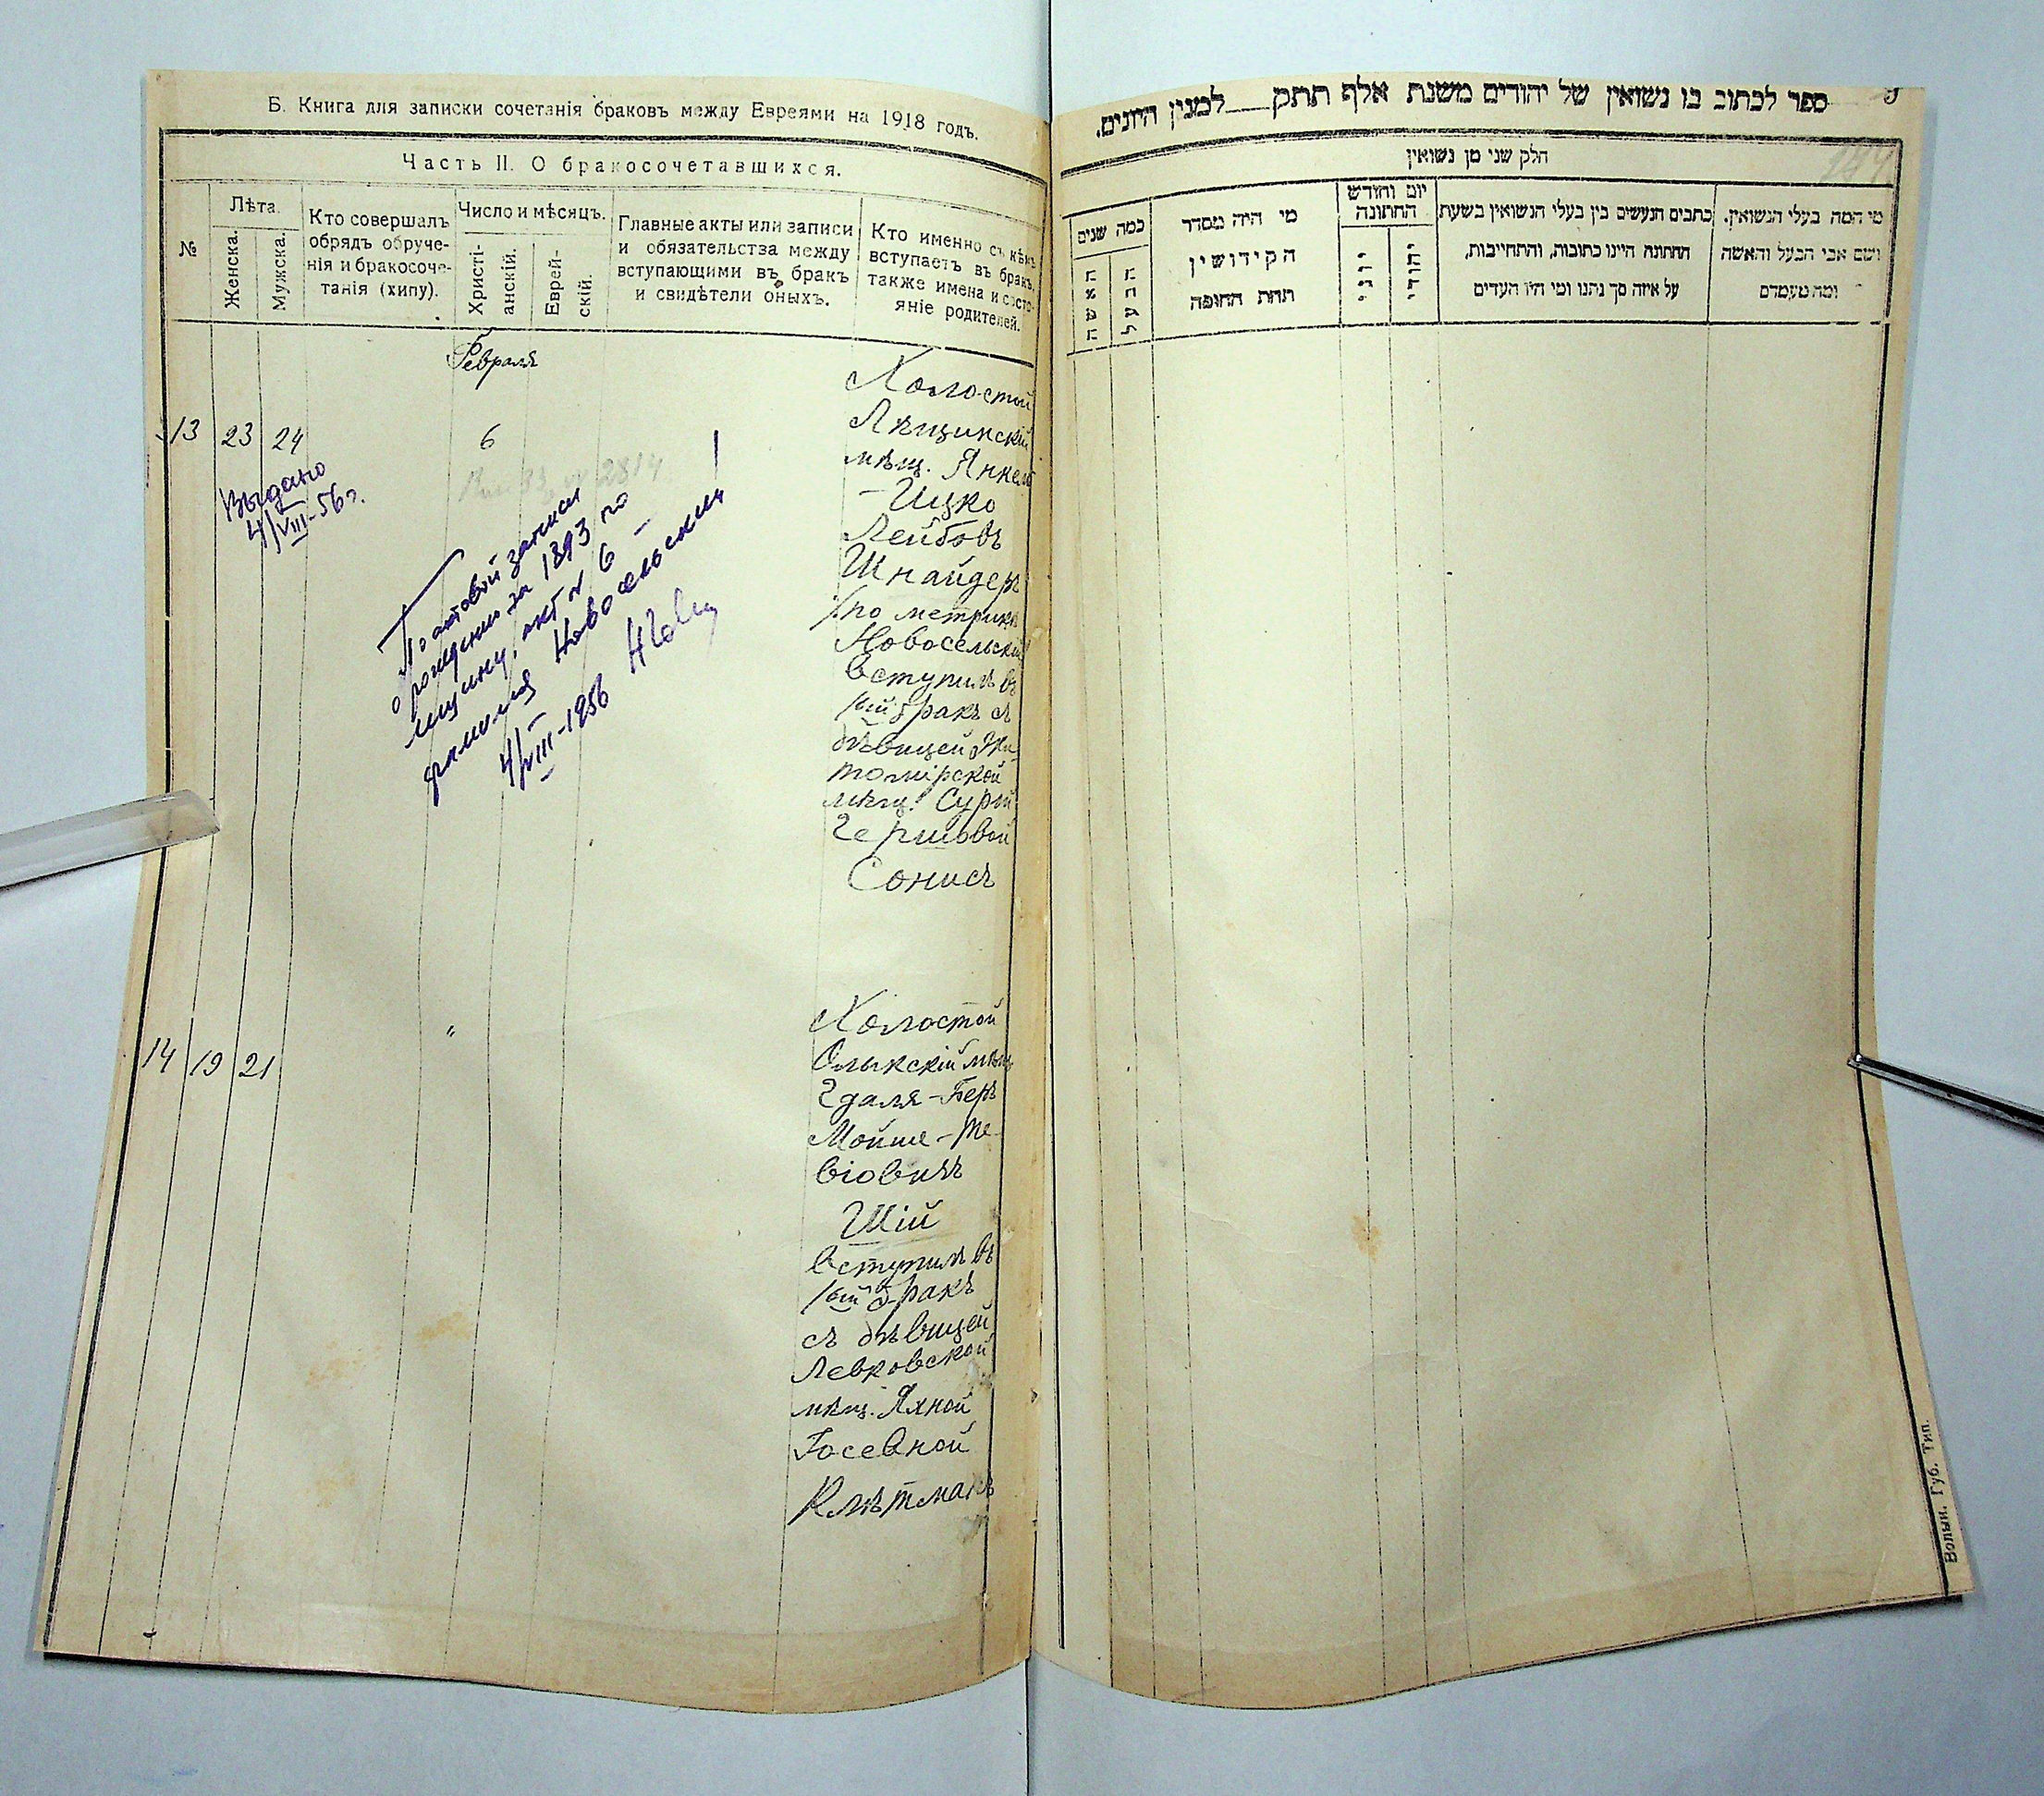 Б. Книга для записки сочетанія браковъ между Евреями на 1918 годъ.
Часть II. О бракосочетавшихся.
№
Лѣта.
Женска.
Мужска.
Кто совершалъ
обрядъ обруче-
нія и бракосоче-
танія (хипу).
Число и мѣсяцъ.
Христі-
анскій.
Еврей-
скій.
Главные акты или записи
и обязательства между
вступающими въ бракъ
и свидѣтели оныхъ.
Кто именно съ кѣмъ
вступаетъ въ бракъ,
также имена и состо-
яніе родителей.
Февраля
13 23 24 6
Холостой
Лѣщинскій
мѣщ. Янкель
-Ицко
Лейбовъ
Шнайдеръ
/по метрикѣ
Новосельскій
вступилъ въ
1ый бракъ съ
дѣвицей Жи-
томірской
мѣщ. Сурой
Гершовой
Сонисъ
Выдано
4/VIII-56г.
2814
По актовой записи
о рождении за 1893 по
акт № 6 -
фамилия Новосельский!
4/VIII-1956
14 19 21 "
Холостой
Олыкскій мѣщ
Гдаля-Беръ
Мойше-Те-
віовичъ
Шій
вступилъ въ
1ый бракъ
съ дѣвицей
Левковской
мѣщ. Яхной
Іосевной
Клѣтманъ
ספר לכתוב בו נשואין של יהודים משנת אלף תתק___למנין היונים.
חלק שני מן נשואין
מי המה בעלי הנשואין.
ושם אבי הבעל והאשה
ומה מעמדם
כתבים הנעשים בין בעלי הנשואין בשעת
החתונה היינו כתובות, והתחייבות,
על איזה סך נתנו ומי היו העדים
יום וחודש
החתונה
יהודי
יוני
מי היה מסדר
הקידושין
תחת החופה
כמה שנים
הבעל
האשה
Волын. Губ. Тип.